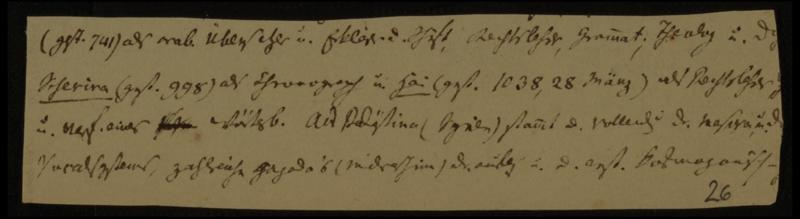 (gest. 941) als arab. Übersetzer u. Erklär. d. Schrift, Rechtslehr, Grammat., Theolog u. D
Scherira (gest. 998) als Chronograph u. Hai (gest. 1038, 28 März) als Rechtslehr
u. Verf. eines Wörterb. Aus Palästina (Syrien) stammt d. Vollend. der Masora, u. d.
Vocalsystems, zahlreiche Hagada's (Midraschim) derselb. u. d. erst. Kosmograph
26